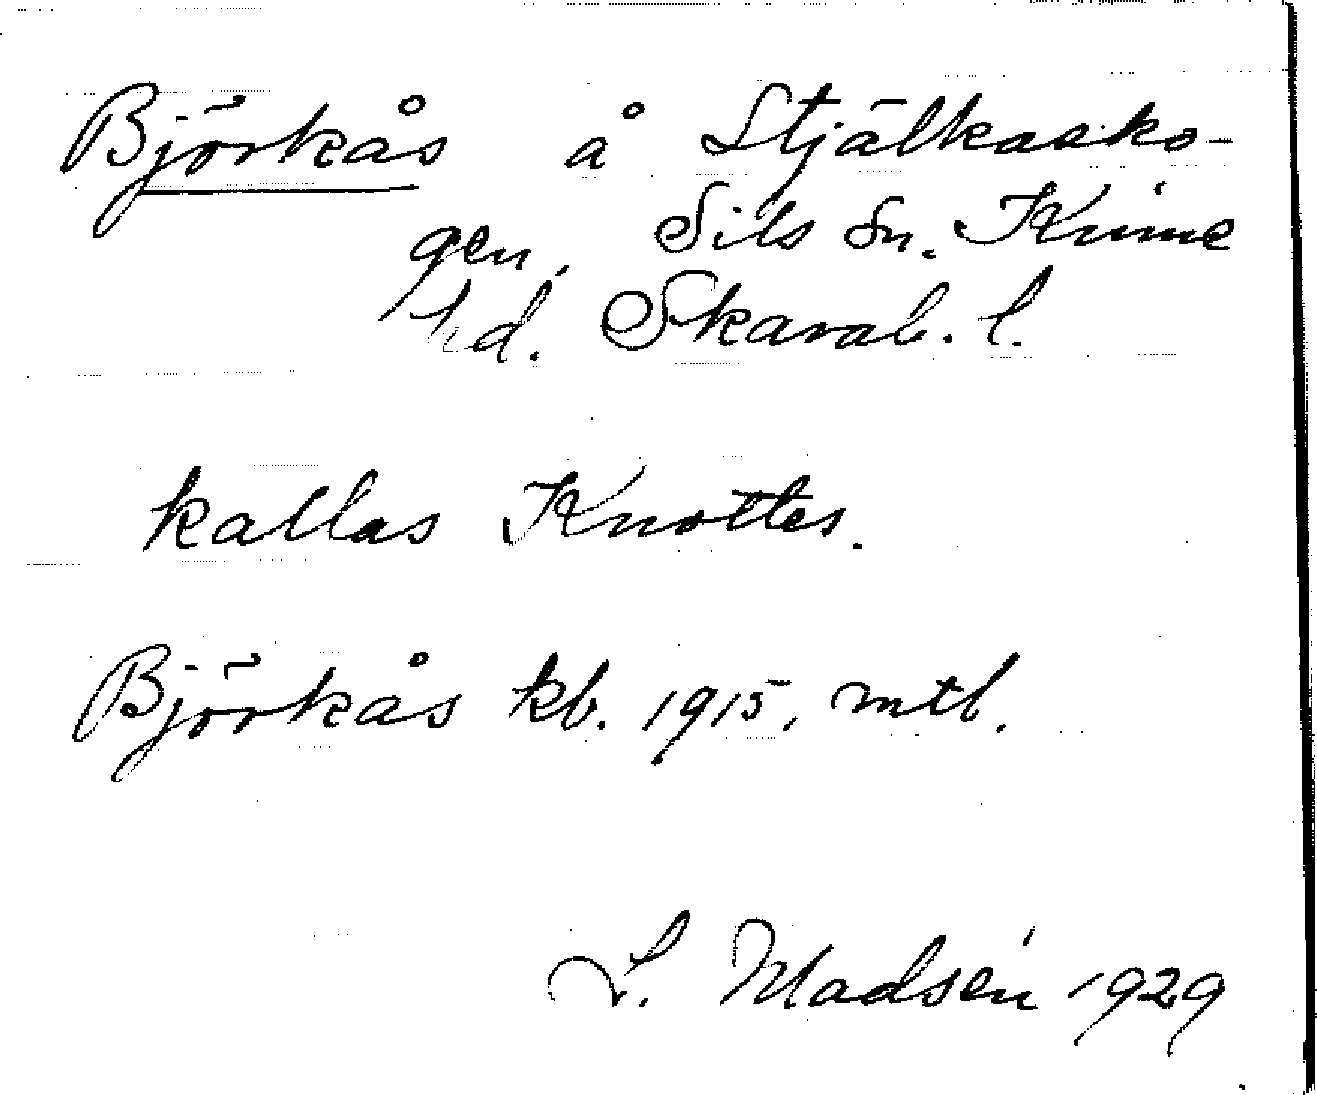 Björkås å Stjälkasko-
gen, Sils sn. Kinne
hd. Skarab. l.
kallas Knottes.
Björkås kb. 1915, mtb.
L. Madsén 1929